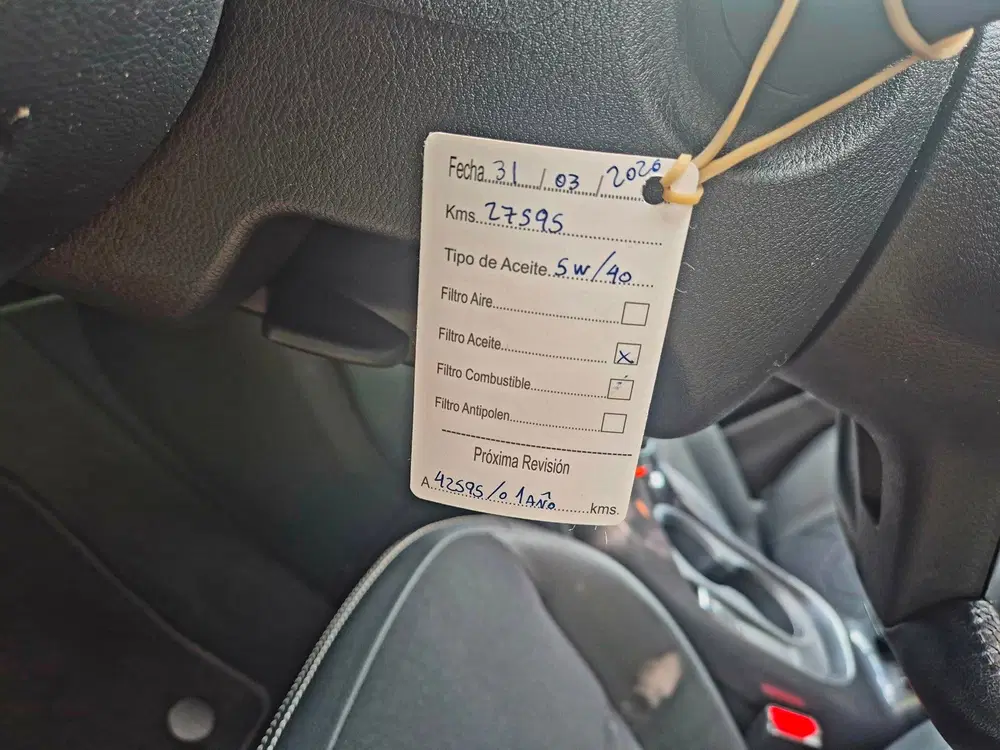 Fecha 31 / 03 / 2026
Kms. 27595
Tipo de Aceite 5W/40
Filtro Aire
Filtro Aceite X
Filtro Combustible
Filtro Antipolen
Próxima Revisión
A 42595/o 1AÑO kms.